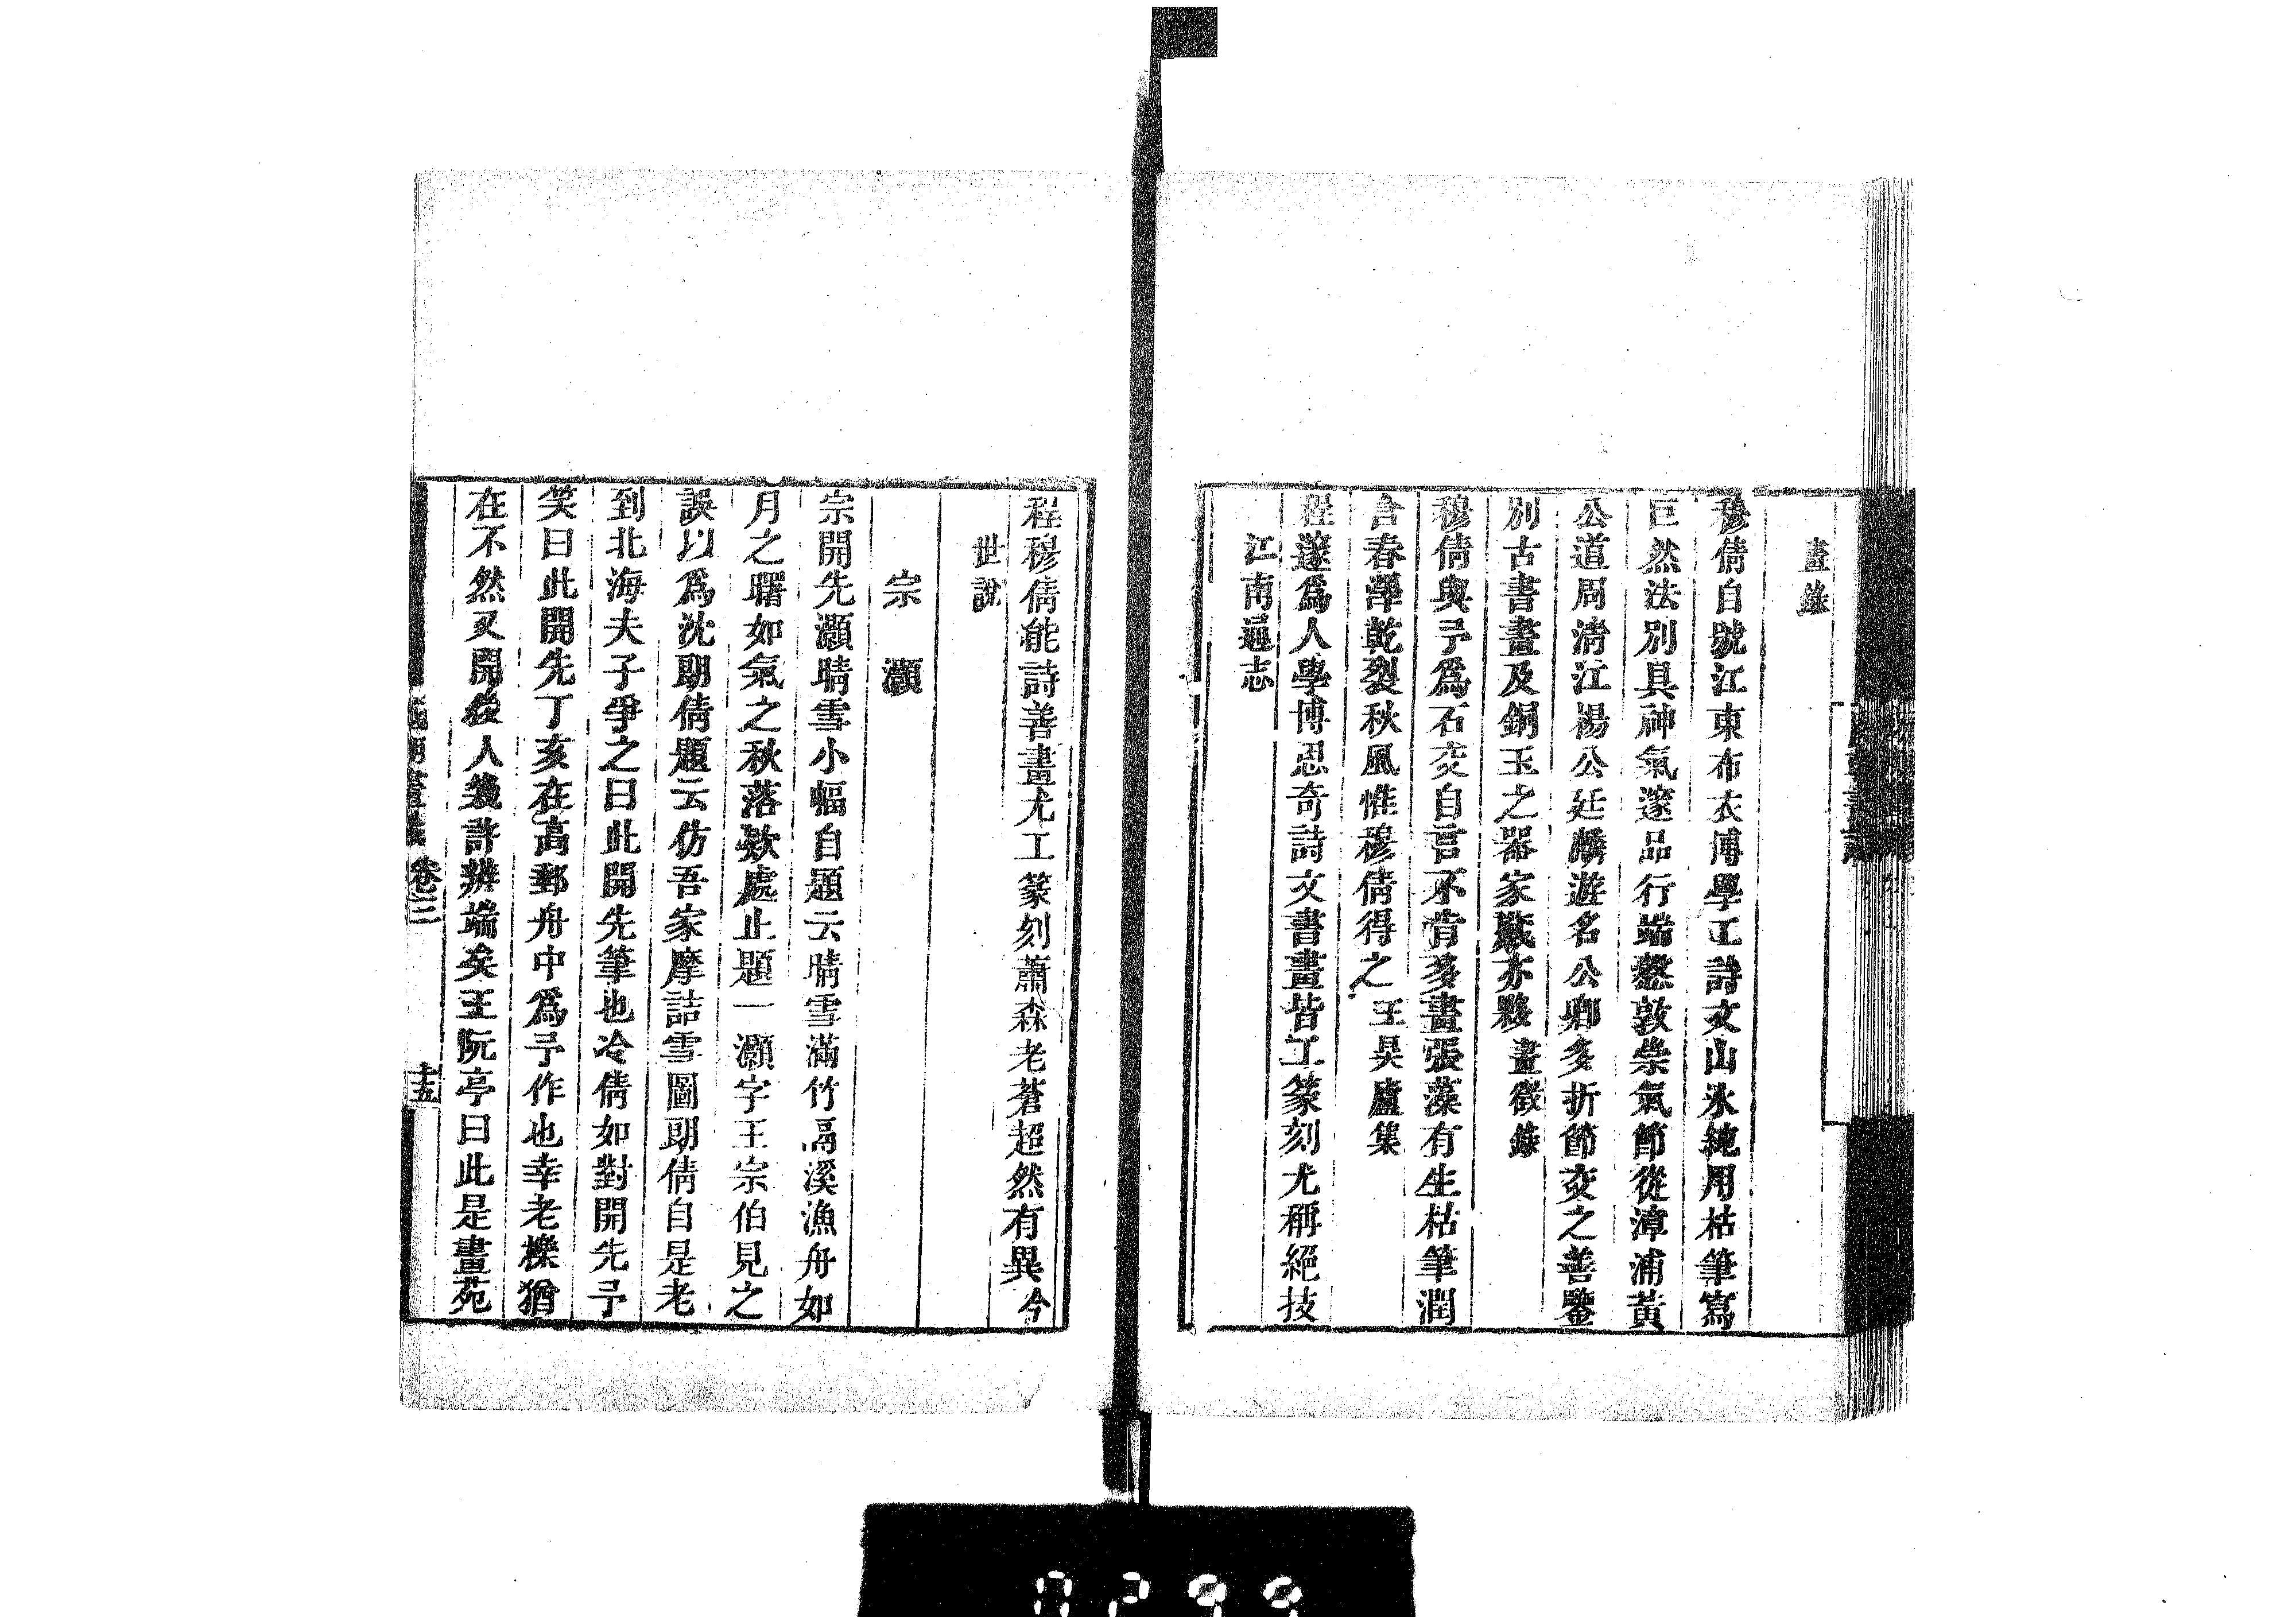 畫錄
穆倩自號江東布衣博學工詩文山水純用枯筆寫
巨然法別具神氣邃品行端愨敦崇氣節從漳浦黃
公道周清江楊公廷麟遊名公卿多折節交之善鑒
別古書畫及銅玉之器家藏亦夥畫徵錄
穆倩與予為石交自言不肯多畫張藻有生枯筆潤
含春澤乾裂秋風惟穆倩得之王昊廬集
程邃為人學博思奇詩文書畫皆工篆刻尤稱絕技
江南通志
程穆倩能詩善畫尤工篆刻蕭森老蒼超然有異今
世說
宗灝
宗開先灝晴雪小幅自題云晴雪滿竹鬲溪漁舟如
月之曙如氣之秋落欵處止題一灝字王宗伯見之
誤以為沈朗倩題云仿吾家摩詰雪圖朗倩自是老
到北海夫子爭之曰此開先筆也冷倩如對開先予
笑曰此開先丁亥在高郵舟中為予作也幸老櫟猶
在不然又開後人幾許辨端矣王阮亭曰此是畫苑
卷三
十五
0299